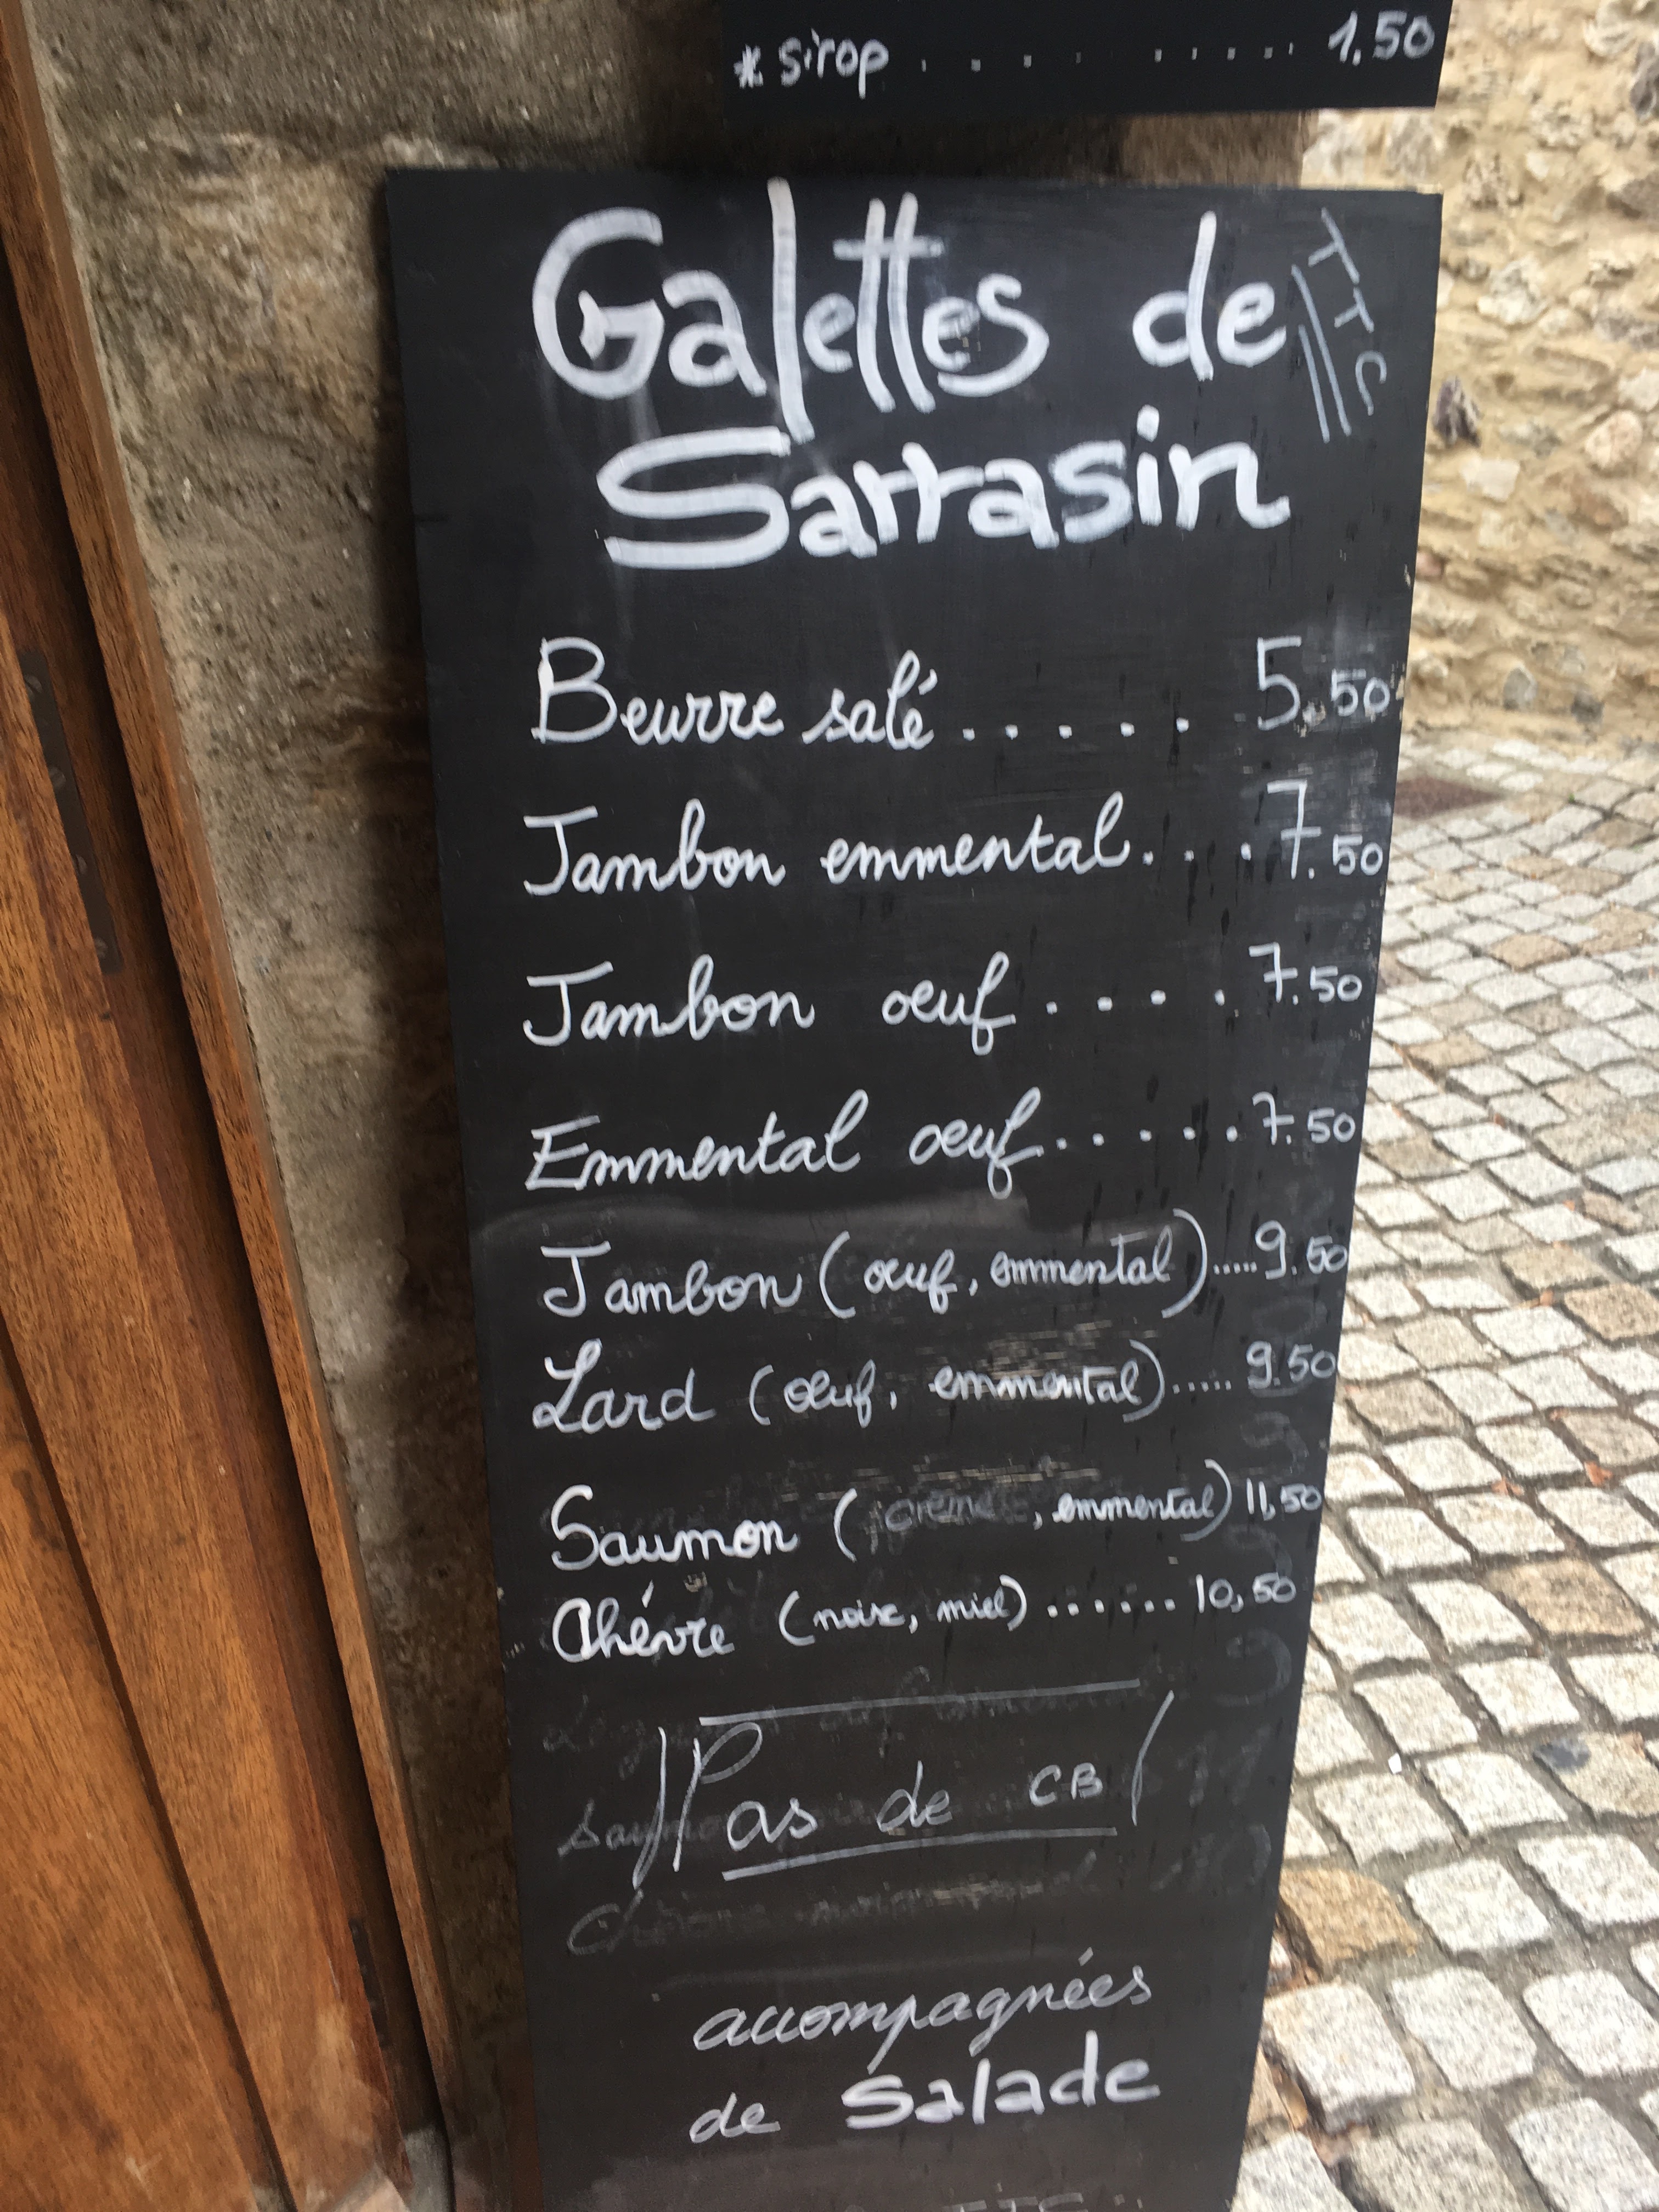 * sirop . . . . . . . . . . 1.50
Galettes de
TTC
Sarrasin
Beurre salé . . . . . 5.50
Jambon emmental . . . 7.50
Jambon oeuf . . . . 7.50
Emmental oeuf . . . . . . 7.50
Jambon (oeuf, emmental)..... 9.50
Lard (oeuf, emmental)..... 9.50
Saumon (crème, emmental) 11,50
Chévre (noix, miel) ....... 10,50
Pas de CB
accompagnées
de Salade